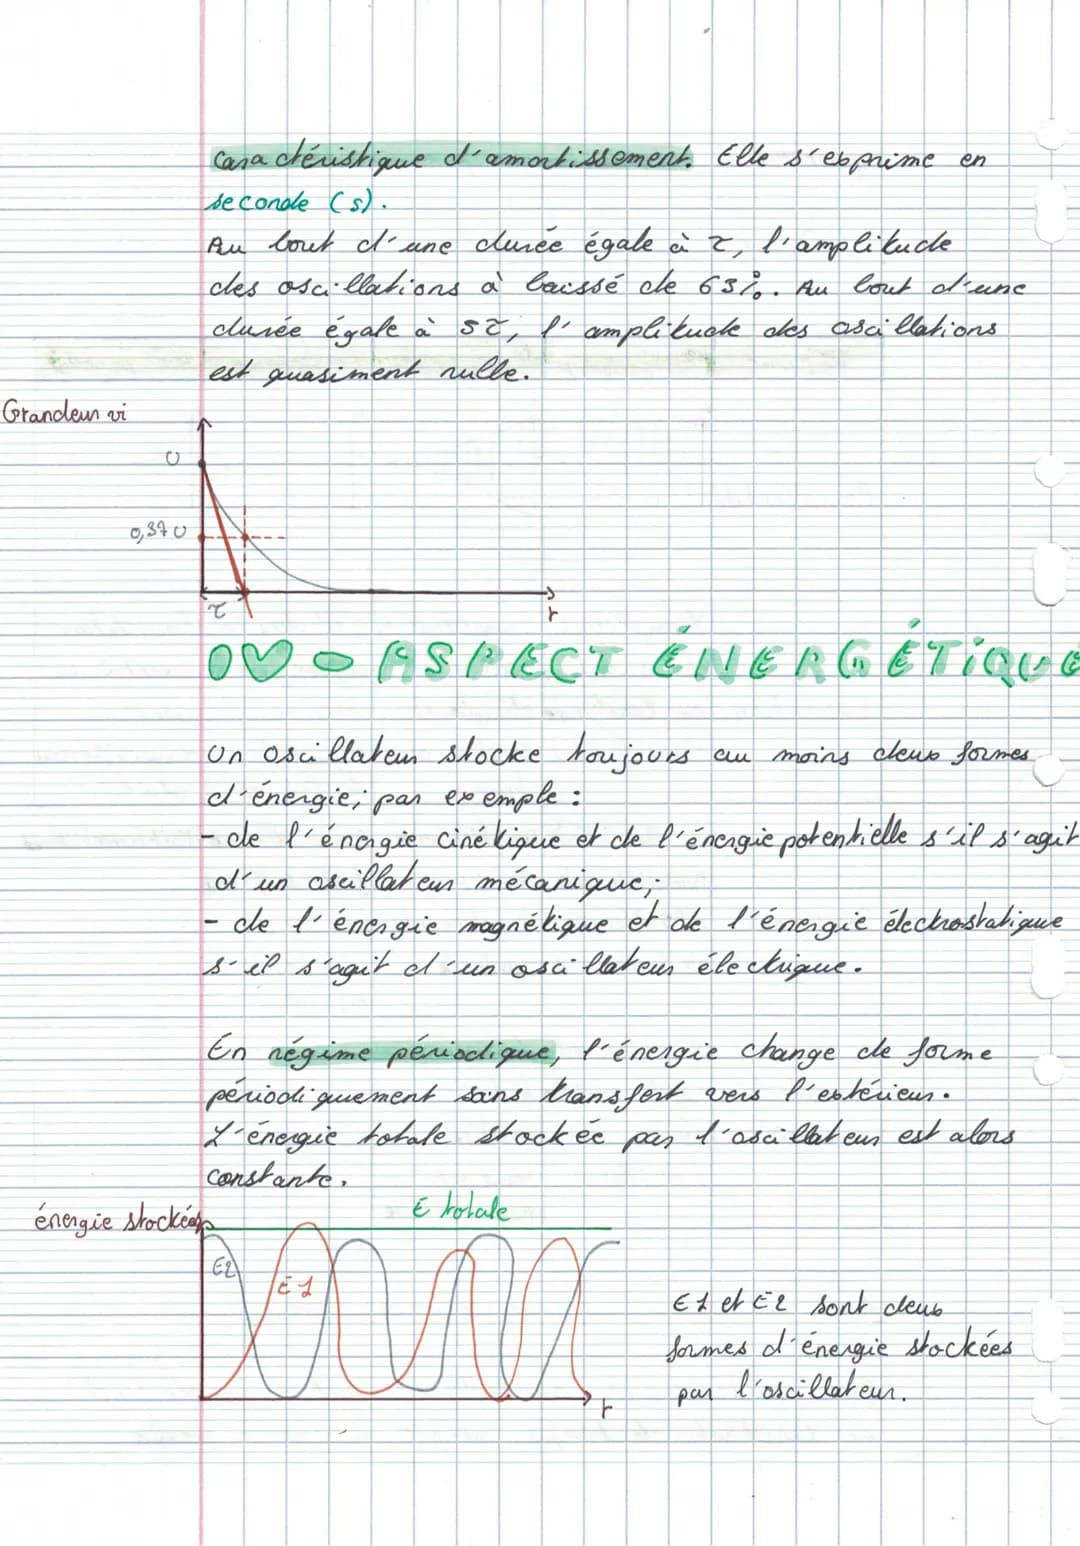 caractéristique d'amortissement. Elle s'exprime en
seconde (s).
Au bout d'une durée égale à τ, l'amplitude
des oscillations à baissé de 63%. Au bout d'une
durée égale à 5τ, l'amplitude des oscillations
est quasiment nulle.
Grandeur vi
U
0,37 U
τ
t
IV - ASPECT ÉNERGÉTIQUE
Un oscillateur stocke toujours au moins deux formes
d'énergie, par exemple :
- de l'énergie cinétique et de l'énergie potentielle s'il s'agit
d'un oscillateur mécanique;
- de l'énergie magnétique et de l'énergie électrostatique
s'il s'agit d'un oscillateur électrique.
En régime périodique, l'énergie change de forme
périodiquement sans transfert vers l'extérieur.
L'énergie totale stockée par l'oscillateur est alors
constante.
énergie stockées
E totale
E2
E1
t
E1 et E2 sont deux
formes d'énergie stockées
par l'oscillateur.